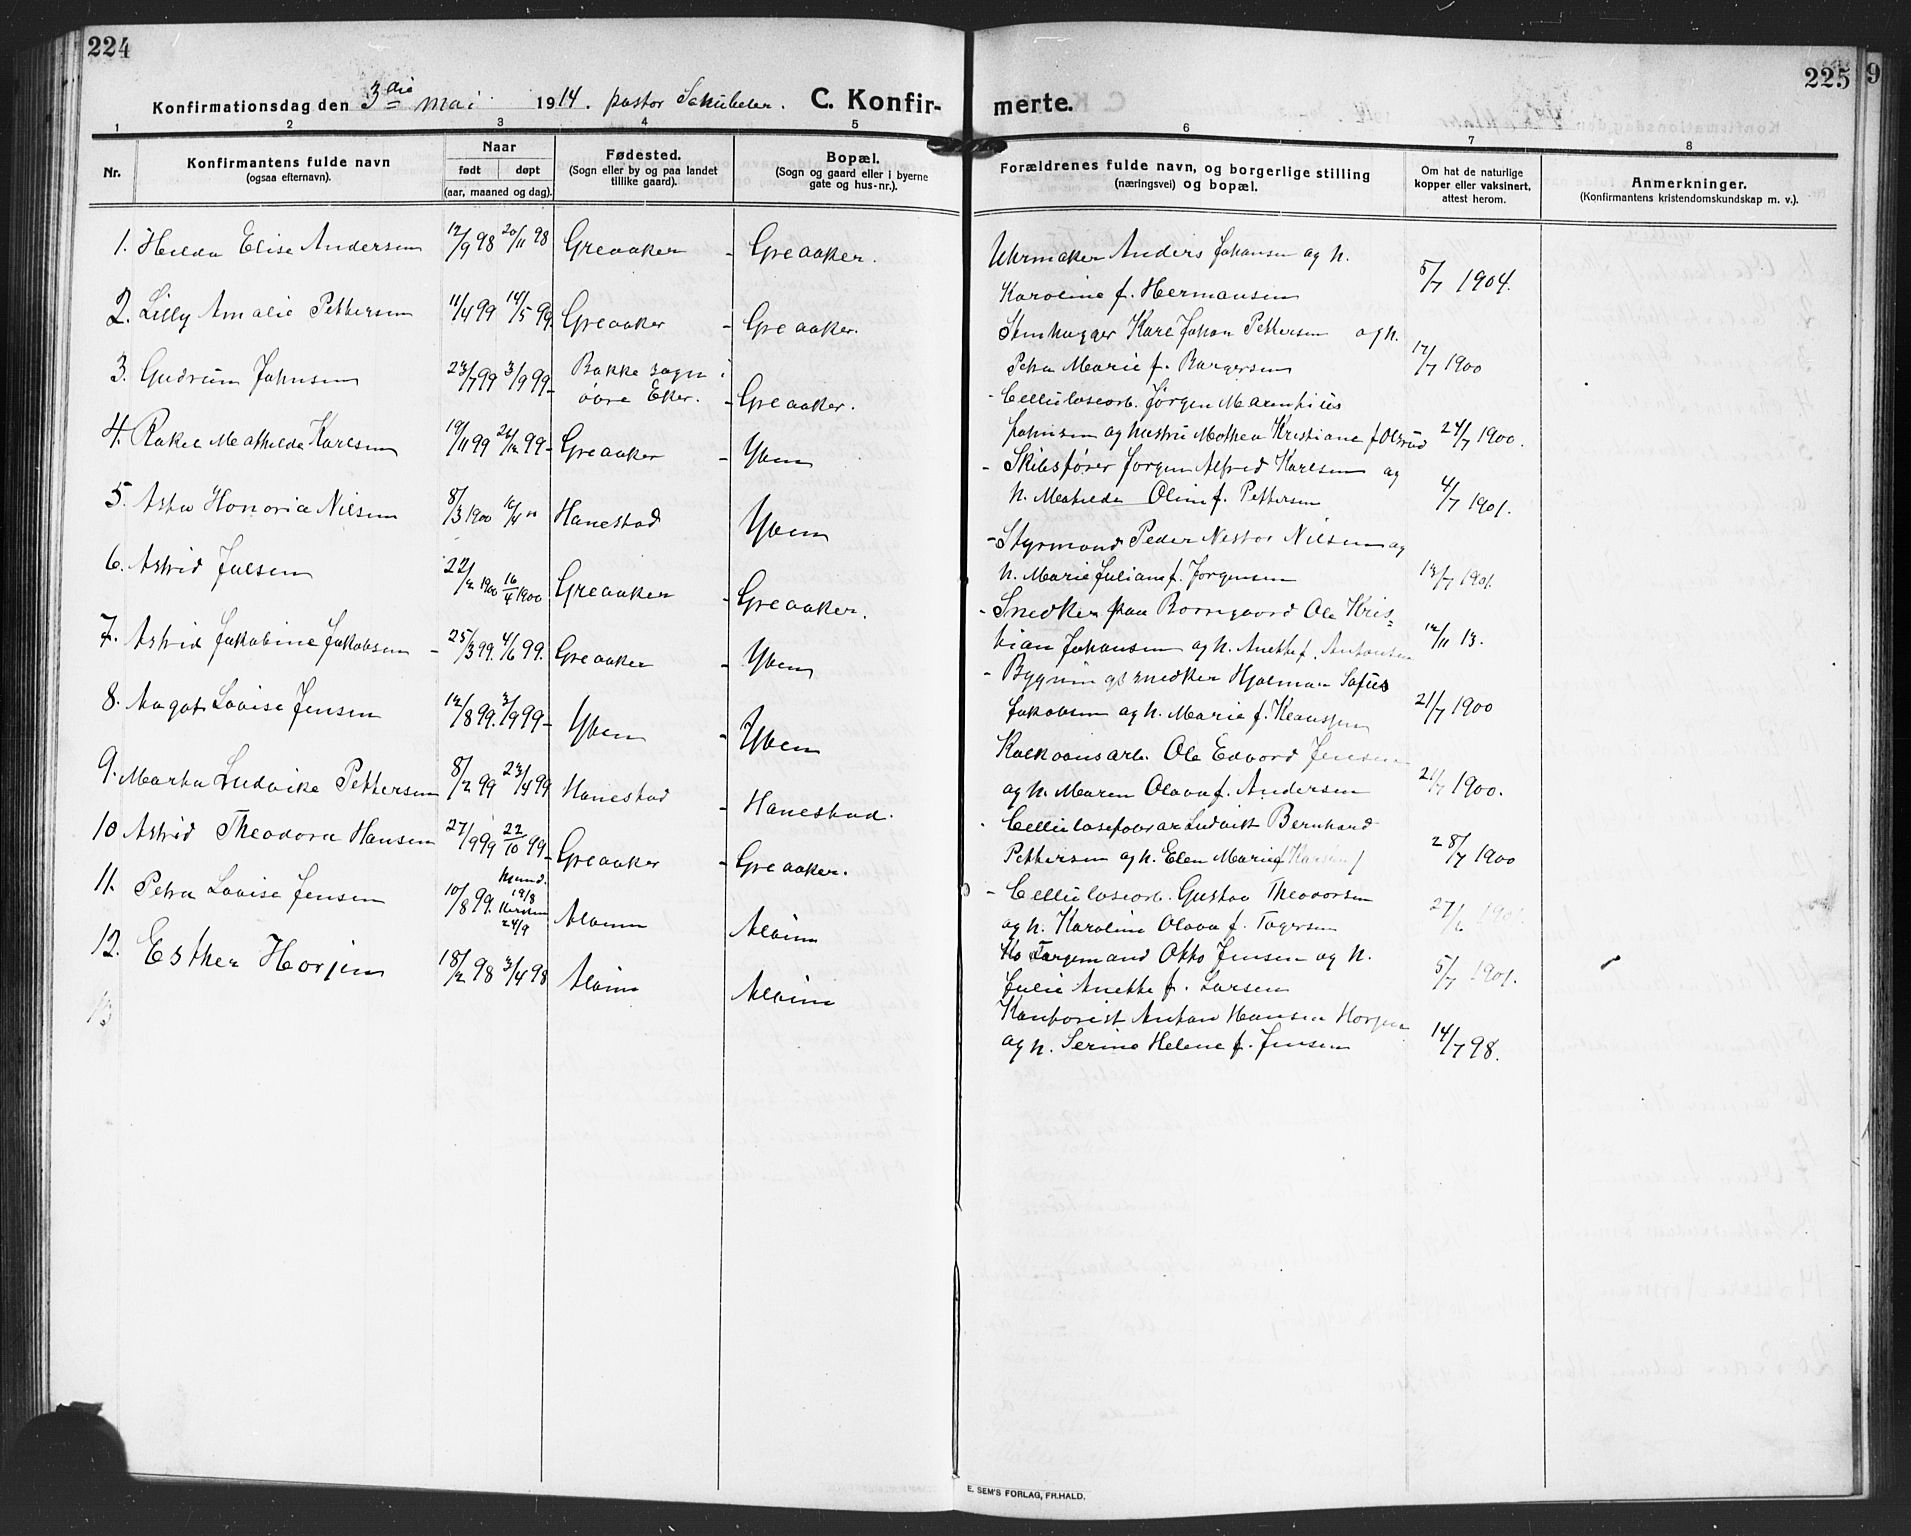 224
Konfirmationsdag den 3die mai 1914. pastor C. Konfir-
1 2 3 4 5
Nr. Konfirmantens fulde navn Naar Fødested. Bopæl.
(ogsaa efternavn). født døpt (Sogn eller by og paa landet (Sogn og gaard eller i byerne
(aar, maaned og dag). tillike gaard). gate og hus-nr.).
1. Hilda Elise Andersen 12/9 98 20/11 98 Greaaker - Greaaker.
2. Lilly Amalie Pettersen 11/4 99 14/5 99. Greaaker - Greaaker.
3. Gudrun Johnsen 23/7 99 3/9 99- Bakke sogn i
øvre Eker. - Greaaker.
4. Rakel Mathilde Karlsen 19/11 99 26/12 99- Greaaker - Yven
5. Asta Honoria Nilsen 8/3 1900 16/4 " Hanestad Yven
6. Astrid Julsen 22/2 1900 16/4 1900 Greaaker - Greaaker.
7. Astrid Jakobine Jakobsen - 25/3 99. 4/6 99. Greaaker - Yven
8. Aagot Lovise Jensen 12/8 99. 3/9 99- Yven - Yven
9. Marta Ludvike Pettersen 8/2 99 23/4 99 Hanestad - Hanestad.
10 Astrid Theodora Hansen 27/9 99 22/10 99- Greaaker - Greaaker.
11. Petra Lovise Jensen 10/8 99. 19/8 24/9 Alvim Alvim
12. Esther Horjen 18/2 98 3/4 98 Alvim Alvim
13
225
9
merte.
6 7 8
Forældrenes fulde navn, og borgerlige stilling Om hat de naturlige Anmerkninger.
(næringsvei) og bopæl. kopper eller vaksinert, (Konfirmantens kristendomskundskap m. v.).
attest herom.
Uhrmaker Anders Johansen og h.
Karoline f. Hermansen 5/7 1904.
Stenhugger Karl Johan Pettersen og h.
Petra Marie f. Borgersen 17/7 1900
- Celluloseorb. Jørgen Marentius
Johnsen og hustru Mathea Kristiane f. Olsrud 24/7 1900.
- Skibsfører Jørgen Alfred Karlsen og
h. Matilda Oline f. Pettersen 4/7 1901.
- Styrmand Peder Nestor Nilsen og
h. Marie Juliane f. Jørgensen 13/7 1901.
- Snedker paa Borregaard Ole Kris-
tian Johansen og h. Anette f. Antonsen 12/11 13.
- Bygnings snedker Hjalmar Sofus
Jakobsen og h. Marie f. Klaussen 21/7 1900
Ole Edvard Jensen
og h. Maren Olava f. Andersen 21/7 1900.
- Ludvik Bernhard
Pettersen og h. Elen Marie f. 28/7 1900
- Celluloseorb. Gustav Theodorsen
og h. Karoline Olava f. 27/6 1901
Otto Jensen og h.
Julie Anette f. Larsen 5/7 1901.
Kontorist Anton Hansen Horjen
og h. Serine Helene f. Jensen 14/7 98.
E. SEM'S FORLAG, FR.HALD.